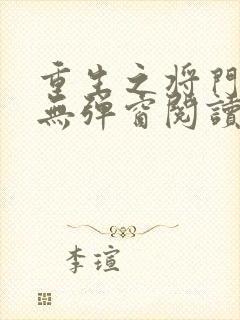 重生之将門
無彈窗閱讀
李瑄